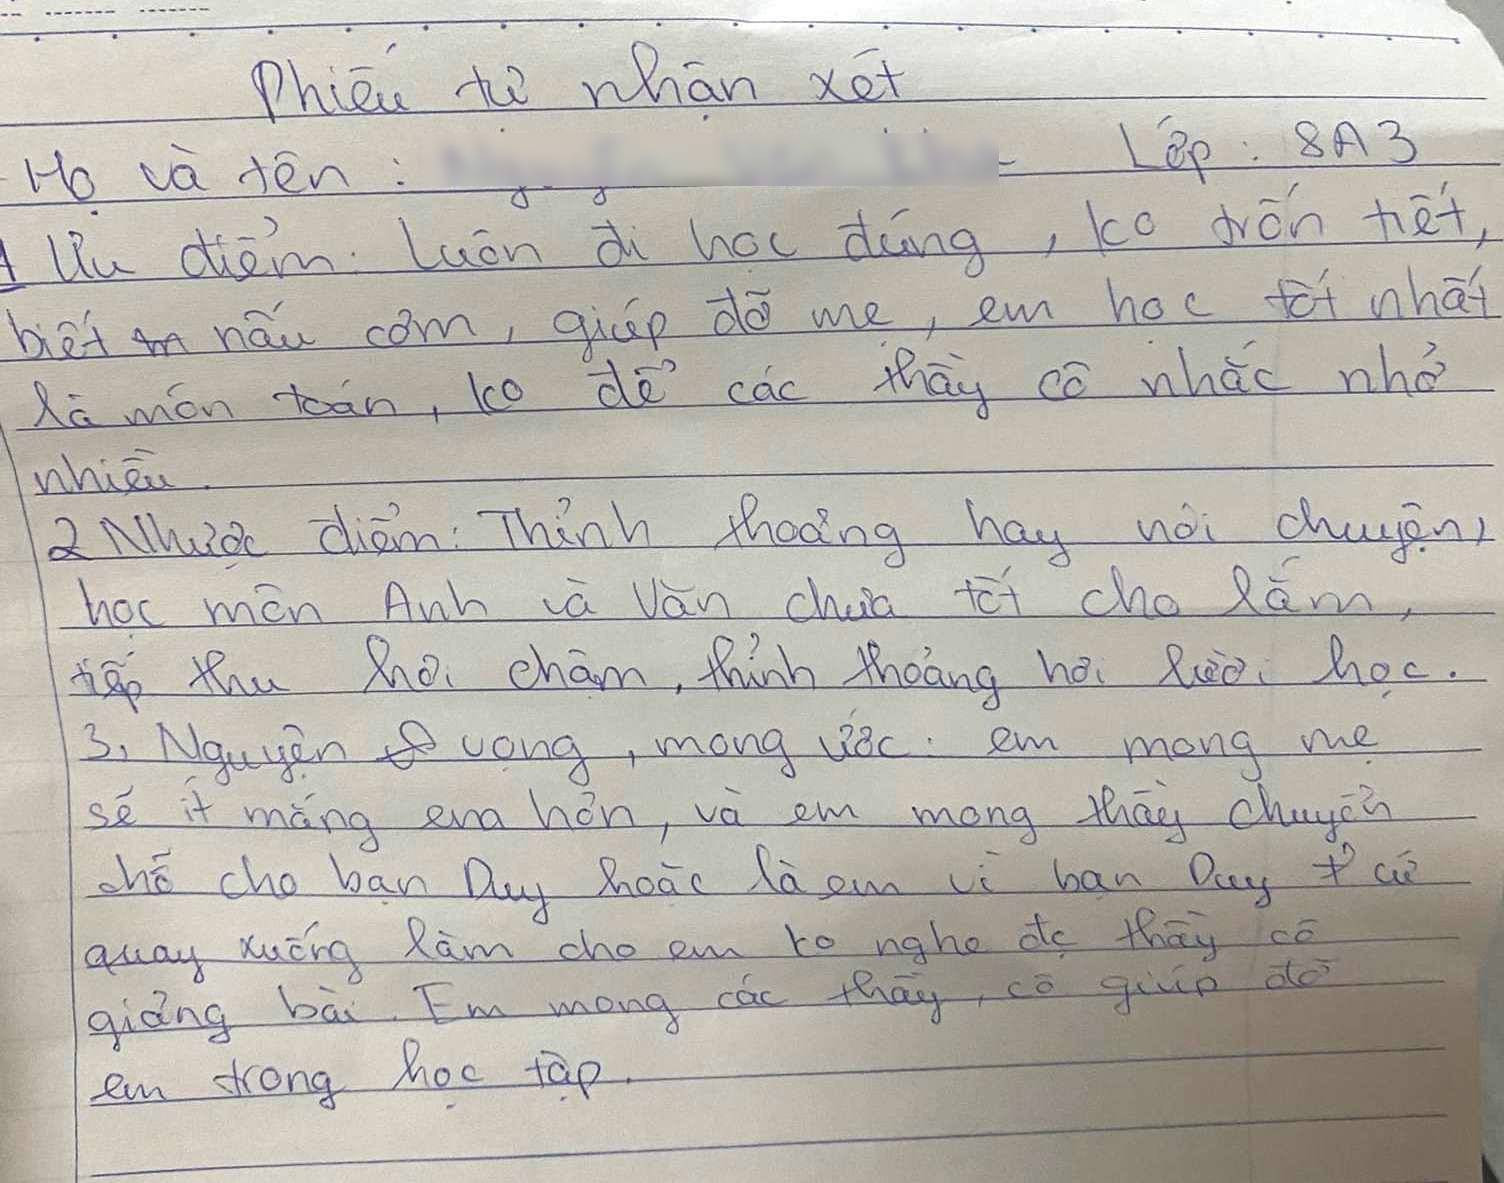 Phiếu tự nhận xét
Họ và tên : Lớp : 8A3
1 Ưu điểm: Luôn đi học đúng, ko trốn tiết,
biết nấu cơm, giúp đỡ mẹ, em học tốt nhất
là môn toán, ko để các thầy cô nhắc nhở
nhiều.
2 Nhược điểm: Thỉnh thoảng hay nói chuyện,
học môn Anh và Văn chưa tốt cho lắm,
tiếp thu hơi chậm, thỉnh thoảng hơi lười học.
3, Nguyện vọng, mong ước: em mong mẹ
sẽ ít mắng em hơn, và em mong thầy chuyển
chỗ cho bạn Duy hoặc là em vì bạn Duy cứ
quay xuống làm cho em ko nghe đc thầy cô
giảng bài. Em mong các thầy, cô giúp đỡ
em trong học tập.